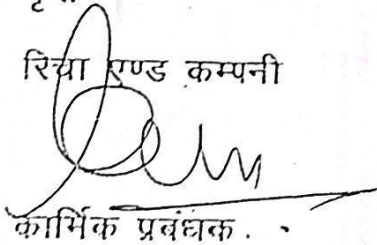 रिचा एण्ड कम्पनी
कार्मिक प्रबंधक.